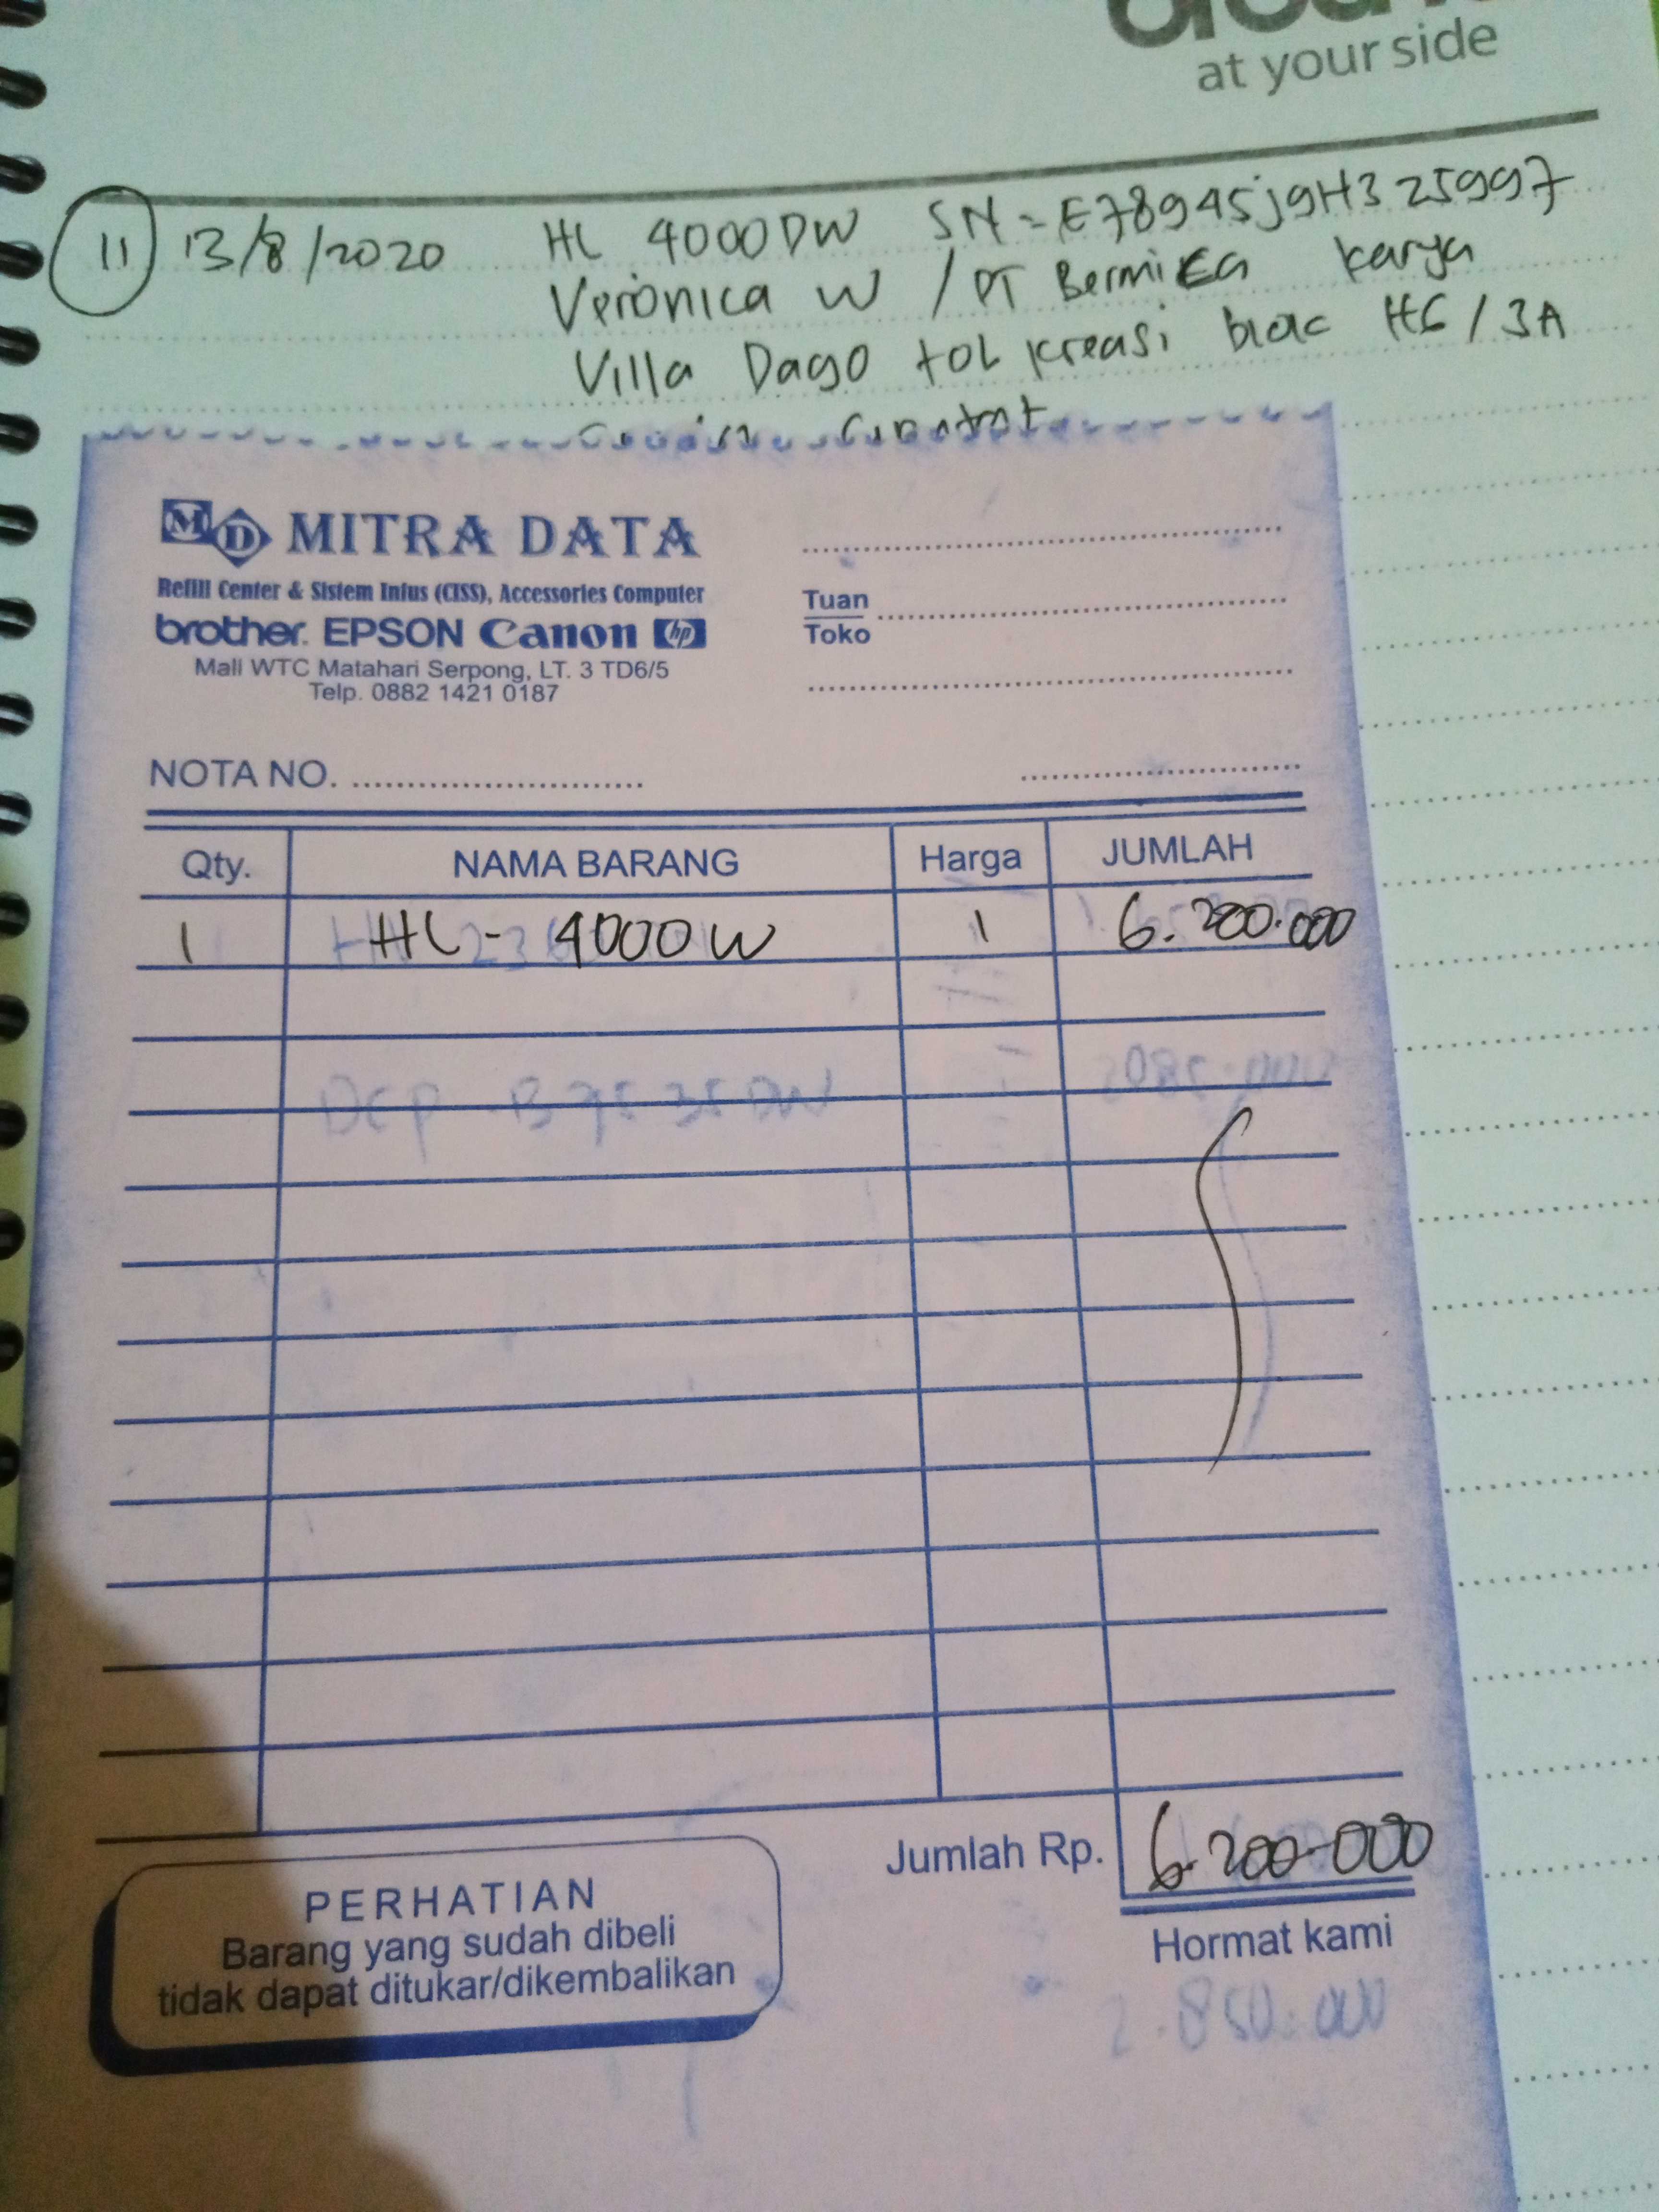 at your side
11 13/8/2020 HL 4000DW SN = E78945J9H325997
Veronica W / PT Bermika karya
Villa Dago tol kreasi bloc H6 / 3A
MD MITRA DATA
Refill Center & Sistem Infus (CISS), Accessories Computer
brother. EPSON Canon hp
Mall WTC Matahari Serpong, LT. 3 TD6/5
Telp. 0882 1421 0187
Tuan
Toko
NOTA NO.
Qty. NAMA BARANG Harga JUMLAH
1 HL - 4000 W 1 6.200.000
Jumlah Rp. 6.200.000
PERHATIAN
Barang yang sudah dibeli
tidak dapat ditukar/dikembalikan
Hormat kami
2.850.000